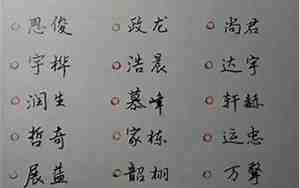 思俊 政龙 尚君
宇桦 浩晨 达宇
润生 慕峰 轩赫
哲奇 家栋 运忠
展益 韶栩 万擎